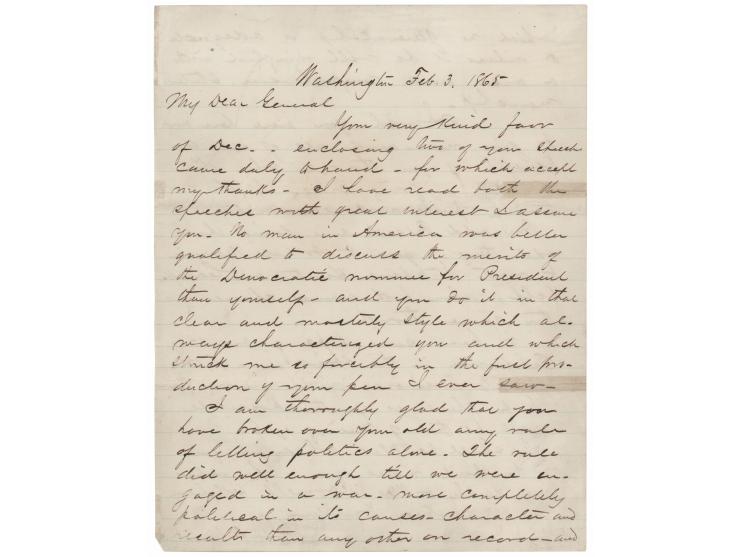 Washington Feb. 3. 1865
My Dear General
Your very kind favor
of Dec. - enclosing two of your speech
came duly to hand - for which accept
my thanks - I have read both the
speeches with great interest I assure
you - No man in America was better
qualified to discuss the merits of
the Democratic nominee for President
than yourself - and you do it in that
clear and masterly style which al-
ways characterized you and which
struck me so forcibly in the first pro-
duction of your pen I ever saw -
I am thoroughly glad that you
have broken over your old army rule
of letting politics alone. The rule
did well enough till we were en-
gaged in a war - more completely
political in its causes - character and
results than any other on record - and